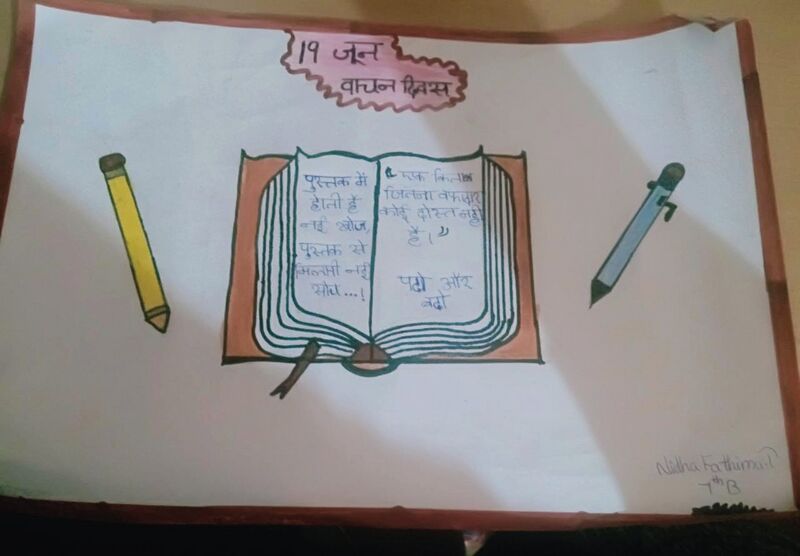 19 जून
वाचन दिवस
पुस्तक में
होती है
नई खोज,
पुस्तक से
मिलती नई
सोच...!
“एक किताब
जितना वफादार
कोई दोस्त नही
है।”
पढो और
बढो
Nidha Fathima.T
7th B